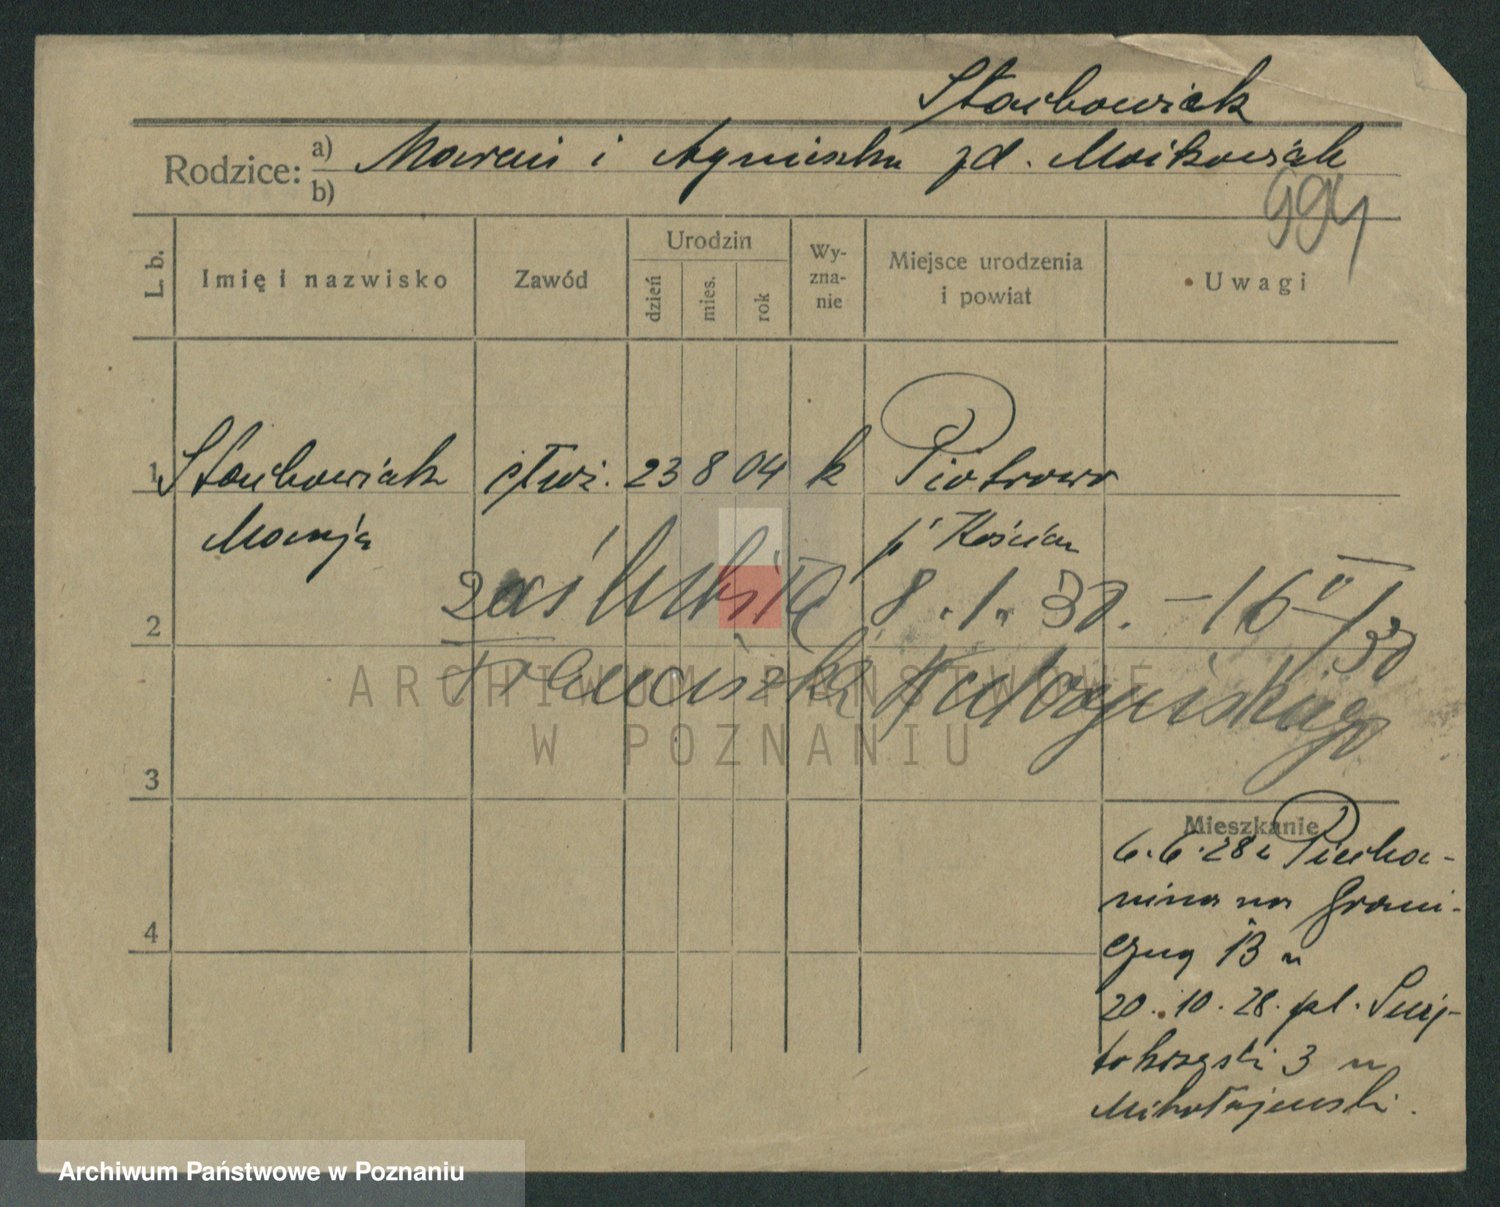 Stachowiak
Rodzice: a) Marcin i Agnieszka zd. Maikowiak
b)
994
L. b. Imię i nazwisko Zawód Urodzin dzień mies. rok Wyznanie Miejsce urodzenia i powiat Uwagi
1 Stachowiak służ. 23 8 04 k Piotrowo
Marja p. Kościan
2 zaślubiła 8.1.30. – 16 II/30
Franciszka
3
Mieszkanie
6.6.28 z Piecha-
nina na Grani-
czną 13 u
20.10.28. pl. Święto-
krzyski 3 u
Mikołajewski.
4
ARCHIWUM PAŃSTWOWE
W POZNANIU
Archiwum Państwowe w Poznaniu